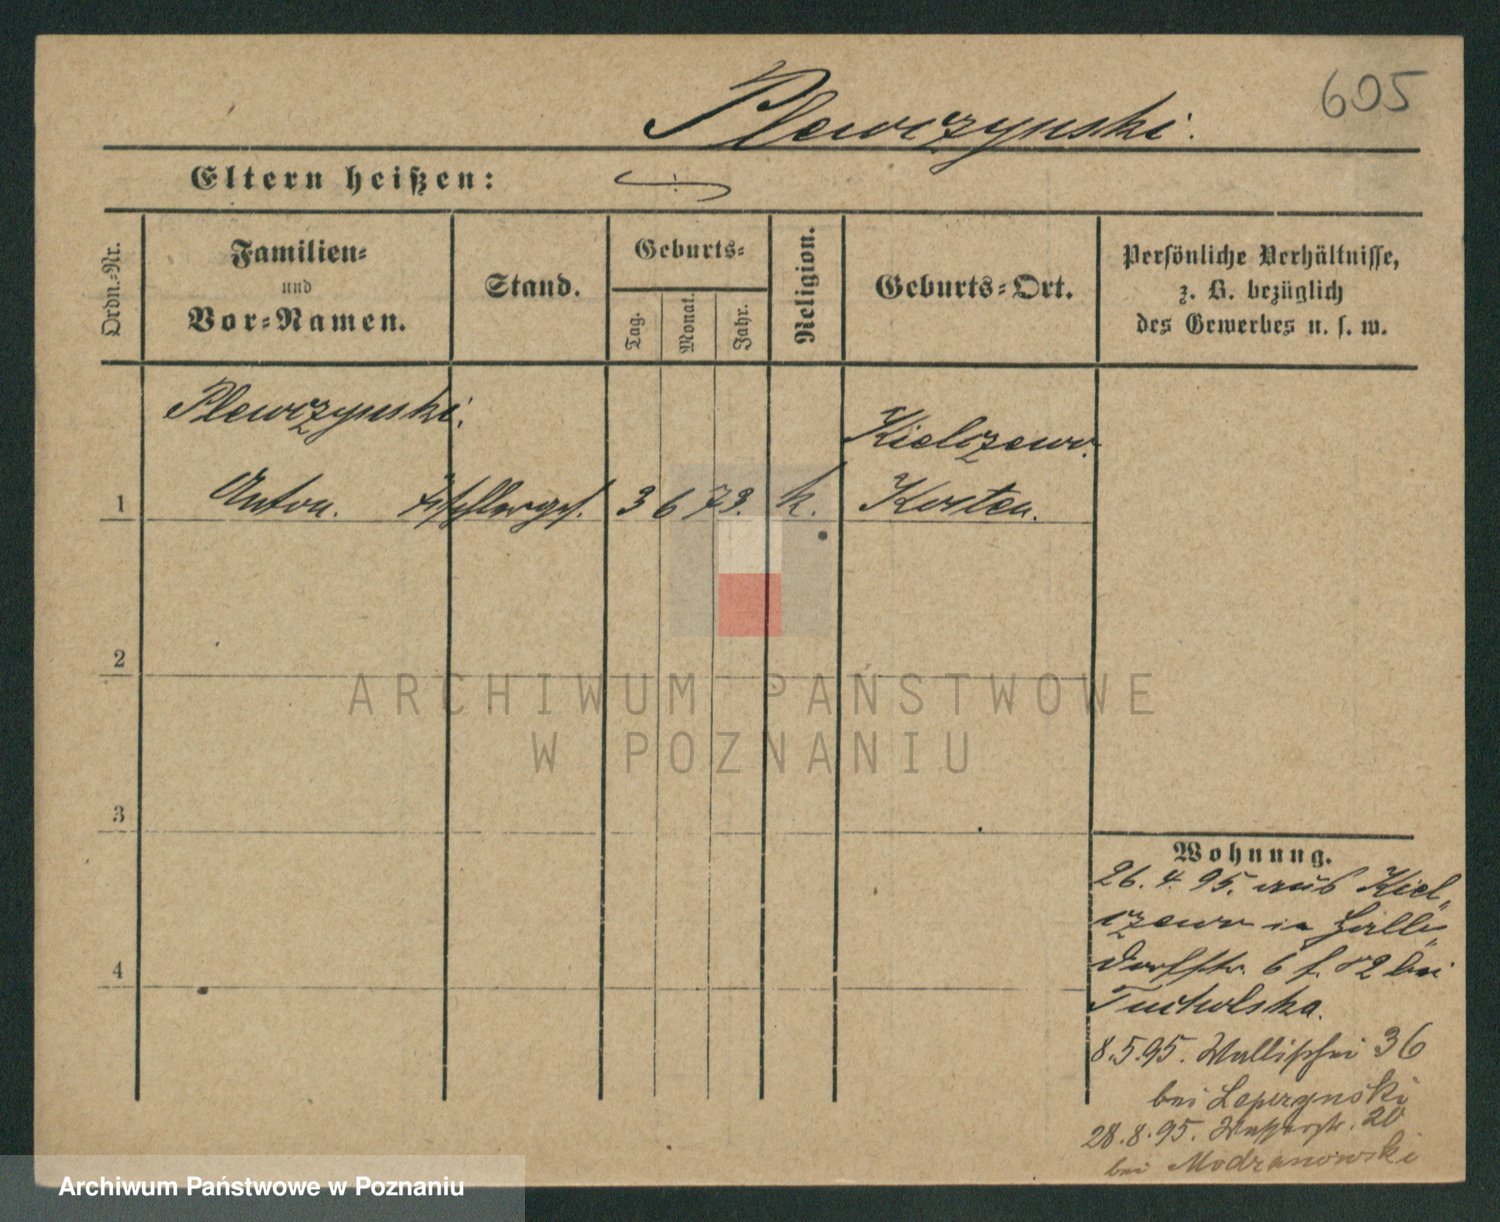 605
Plewczynski.
Eltern heißen:
Ordn.-Nr.
Familien-
und
Vor-Namen.
Stand.
Geburts-
Tag.
Monat.
Jahr.
Religion.
Geburts-Ort.
Persönliche Verhältnisse,
z. B. bezüglich
des Gewerbes u. s. w.
Plewczynski.
Kielczewo.
1 Anton. Tischlerges. 3 6 73. k. Kosten.
2
3
4
Wohnung.
26. 4. 95. aus Kiel-
czewo in
6 f. 82 bei
Tucholska.
8.5.95. Wallischei 36
bei Leperzynski
28.8.95. Wasserstr. 20
bei Modranowski
ARCHIWUM PAŃSTWOWE
W POZNANIU
Archiwum Państwowe w Poznaniu